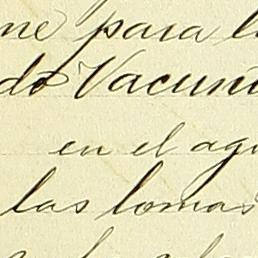 ne para l
do Vacuni
en el agu
las lomas